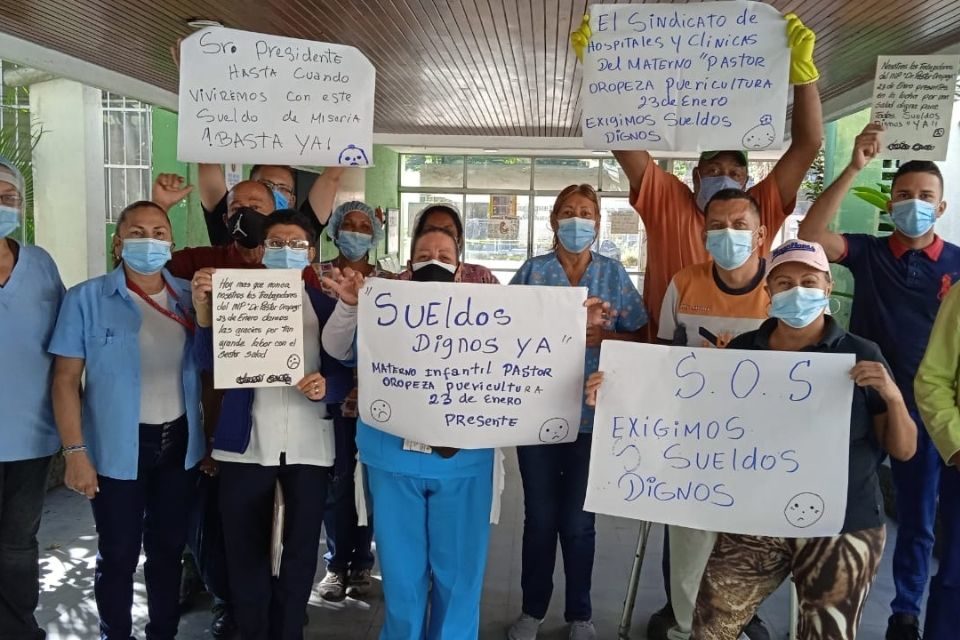 Sro Presidente
HASTA CUANDO
VIVIREMOS CON este
Sueldo de Miseria
¡BASTA YA!
El Sindicato de
Hospitales y Clínicas
Del Materno "Pastor
Oropeza Puericultura
23 de Enero
Exigimos Sueldos
Dignos
Nosotros los trabajadores
del MIP "Dr Pastor Oropeza
23 de Enero presentes
en la lucha por una
salud digna para
todos. Sueldos
Dignos "YA"
Hoy mas que nunca
nosotros los trabajadores
del MIP "Dr Pastor Oropeza
23 de Enero damos
las gracias por tan
grande labor con el
sector salud
"Sueldos
Dignos YA"
Materno Infantil Pastor
Oropeza Puericultura
23 de Enero
Presente
S.O.S
EXIGIMOS
Sueldos
Dignos